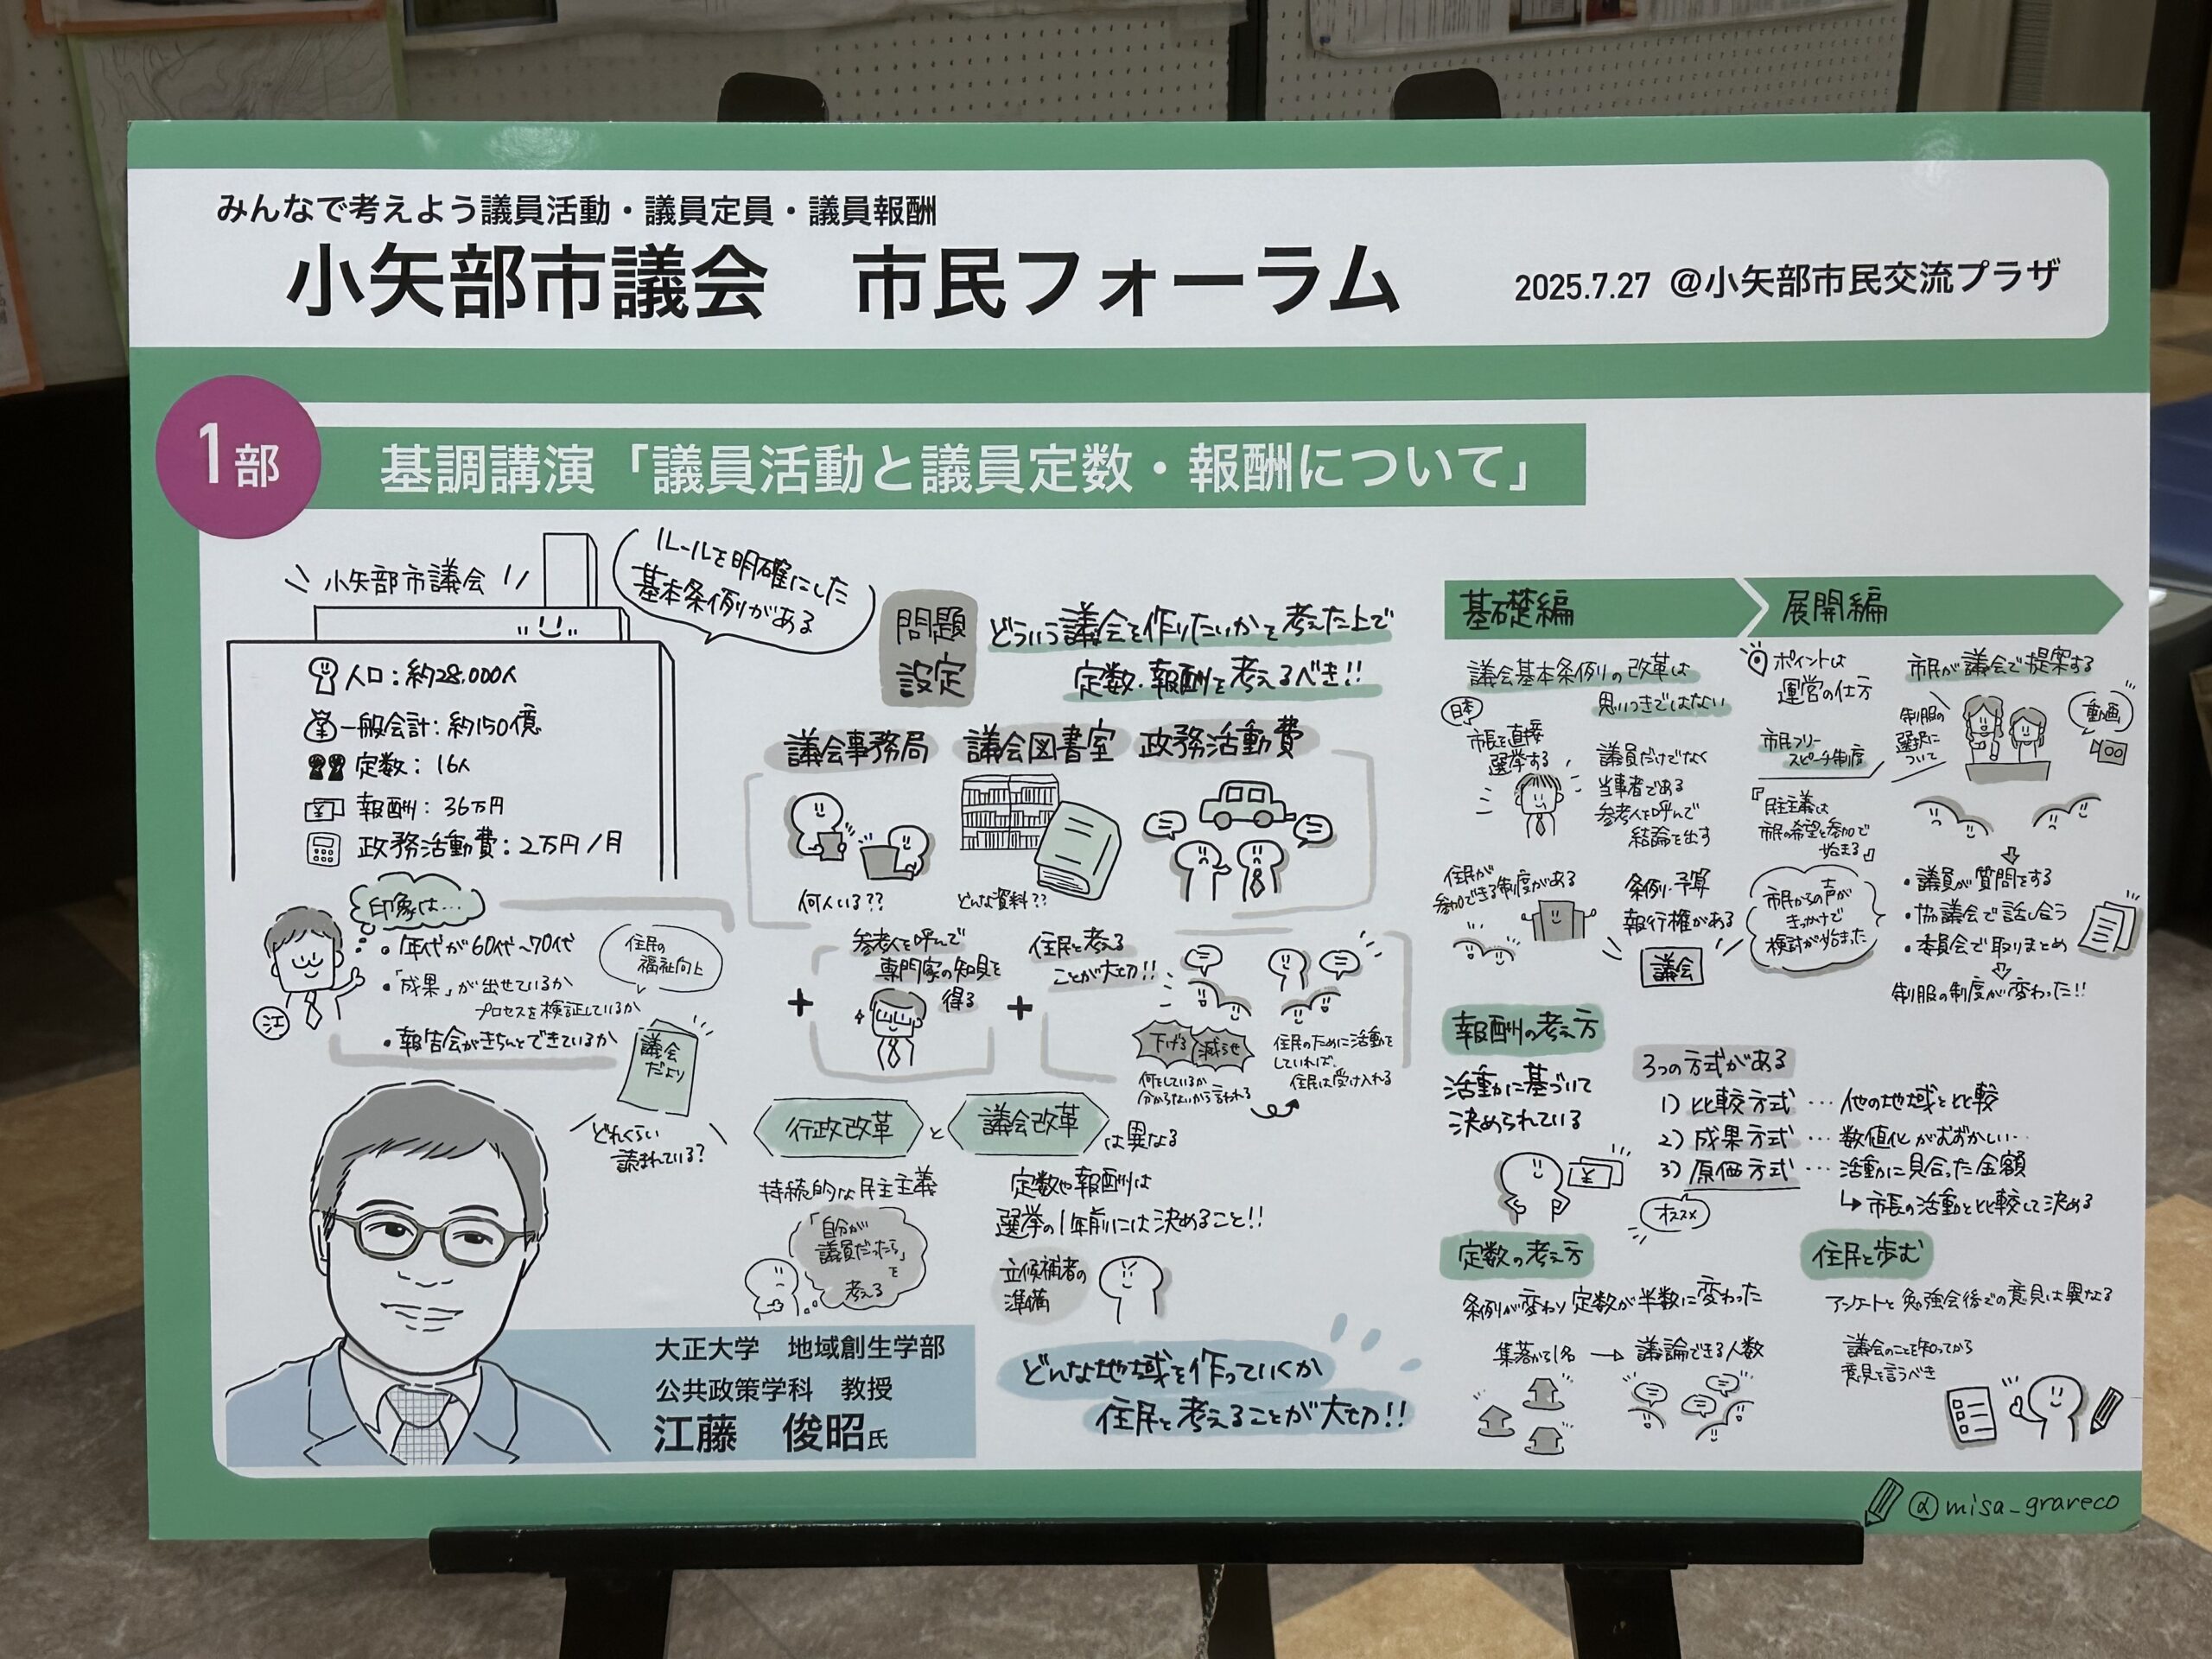 みんなで考えよう議員活動・議員定員・議員報酬
小矢部市議会 市民フォーラム
2025.7.27 @小矢部市民交流プラザ
1部
基調講演「議員活動と議員定数・報酬について」
小矢部市議会
ルールを明確にした
基本条例がある
人口:約28,000人
一般会計:約150億
定数:16人
報酬:36万円
政務活動費:2万円/月
印象は…
・年代が60代~70代
・「成果」が出せているか
プロセスを検証しているか
・報告会がきちんとできているか
江
住民の
福祉向上
議会
だより
どれくらい
読まれている?
大正大学 地域創生学部
公共政策学科 教授
江藤 俊昭氏
問題
設定
どういう議会を作りたいかを考えた上で
定数・報酬を考えるべき!!
議会事務局
何人いる??
議会図書室
どんな資料??
政務活動費
+
参考人を呼んで
専門家の知見を
得る
+
住民と考える
ことが大切!!
下げろ
減らせ
何をしているか
分からないから言われる
住民のために活動を
していれば、
住民は受け入れる
行政改革と議会改革は異なる
持続的な民主主義
「自分が
議員だったら」
を
考える
定数や報酬は
選挙の1年前には決めること!!
立候補者の
準備
どんな地域を作っていくか
住民と考えることが大切!!
基礎編
議会基本条例の改革は
思いつきではない
日本
市長を直接
選挙する
議員だけでなく
当事者である
参考人を呼んで
結論を出す
住民が
参加できる制度がある
条例・予算
執行権がある
議会
展開編
ポイントは
運営の仕方
市民フリー
スピーチ制度
『民主主義は
市民の希望と参加で
始まる』
市民からの声が
きっかけで
検討が始まった
市民が議会で提案する
制服の
選択に
ついて
動画
・議員が質問をする
・協議会で話し合う
・委員会で取りまとめ
制服の制度が変わった!!
報酬の考え方
活動に基づいて
決められている
3つの方式がある
1) 比較方式 … 他の地域と比較
2) 成果方式 … 数値化がむずかしい…
3) 原価方式 … 活動に見合った金額
↳市長の活動と比較して決める
オススメ
定数の考え方
条例が変わり定数が半数に変わった
集落から1名 → 議論できる人数
住民と歩む
アンケートと勉強会後での意見は異なる
議会のことを知ってから
意見を言うべき
@misa_grareco